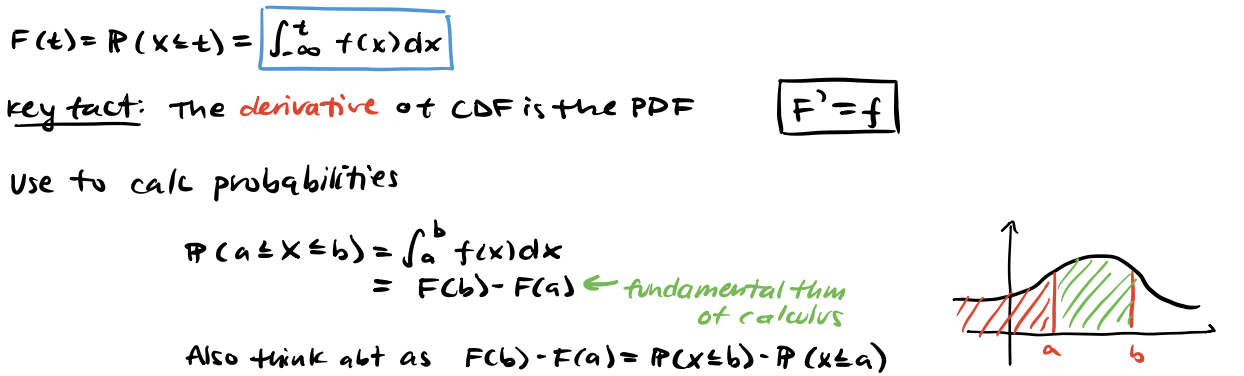 F(t) = ℙ(X ≤ t) = ∫_{-∞}^{t} f(x)dx
key fact: The derivative of CDF is the PDF F' = f
Use to calc probabilities
ℙ(a ≤ X ≤ b) = ∫_a^b f(x)dx
= F(b) - F(a) ← fundamental thm
of calculus
Also think abt as F(b) - F(a) = ℙ(X ≤ b) - ℙ(X ≤ a)
a b